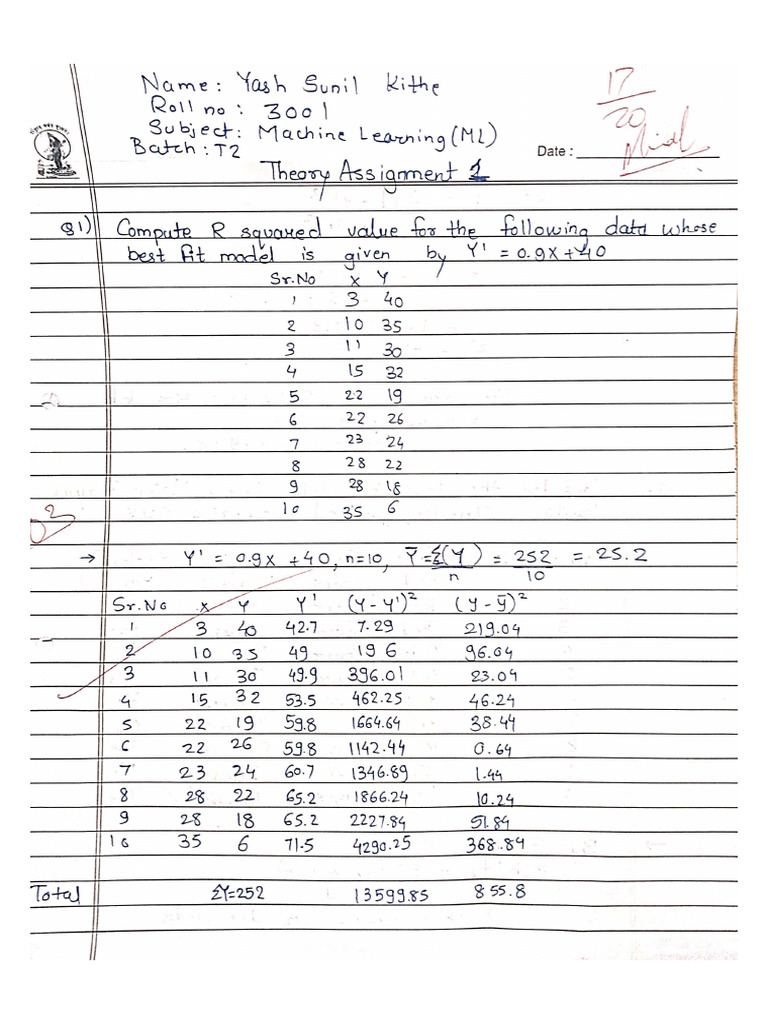 Name: Yash Sunil Kithe
Roll no: 3001
Subject: Machine Learning (ML)
Batch: T2
17
20
Date :
Theory Assignment 1
Q1) Compute R squared value for the following data whose
best fit model is given by Y' = 0.9X+40
Sr.No X Y
1 3 40
2 10 35
3 11 30
4 15 32
5 22 19
6 22 26
7 23 24
8 28 22
9 28 18
10 35 6
→ Y' = 0.9X +40, n=10, Ȳ = Σ(Y)/n = 252/10 = 25.2
Sr.No X Y Y' (Y-Y')² (Y-Ȳ)²
1 3 40 42.7 7.29 219.04
2 10 35 49 196 96.04
3 11 30 49.9 396.01 23.04
4 15 32 53.5 462.25 46.24
5 22 19 59.8 1664.64 38.44
6 22 26 59.8 1142.44 0.64
7 23 24 60.7 1346.89 1.44
8 28 22 65.2 1866.24 10.24
9 28 18 65.2 2227.84 51.84
10 35 6 71.5 4290.25 368.84
Total ΣY=252 13599.85 855.8